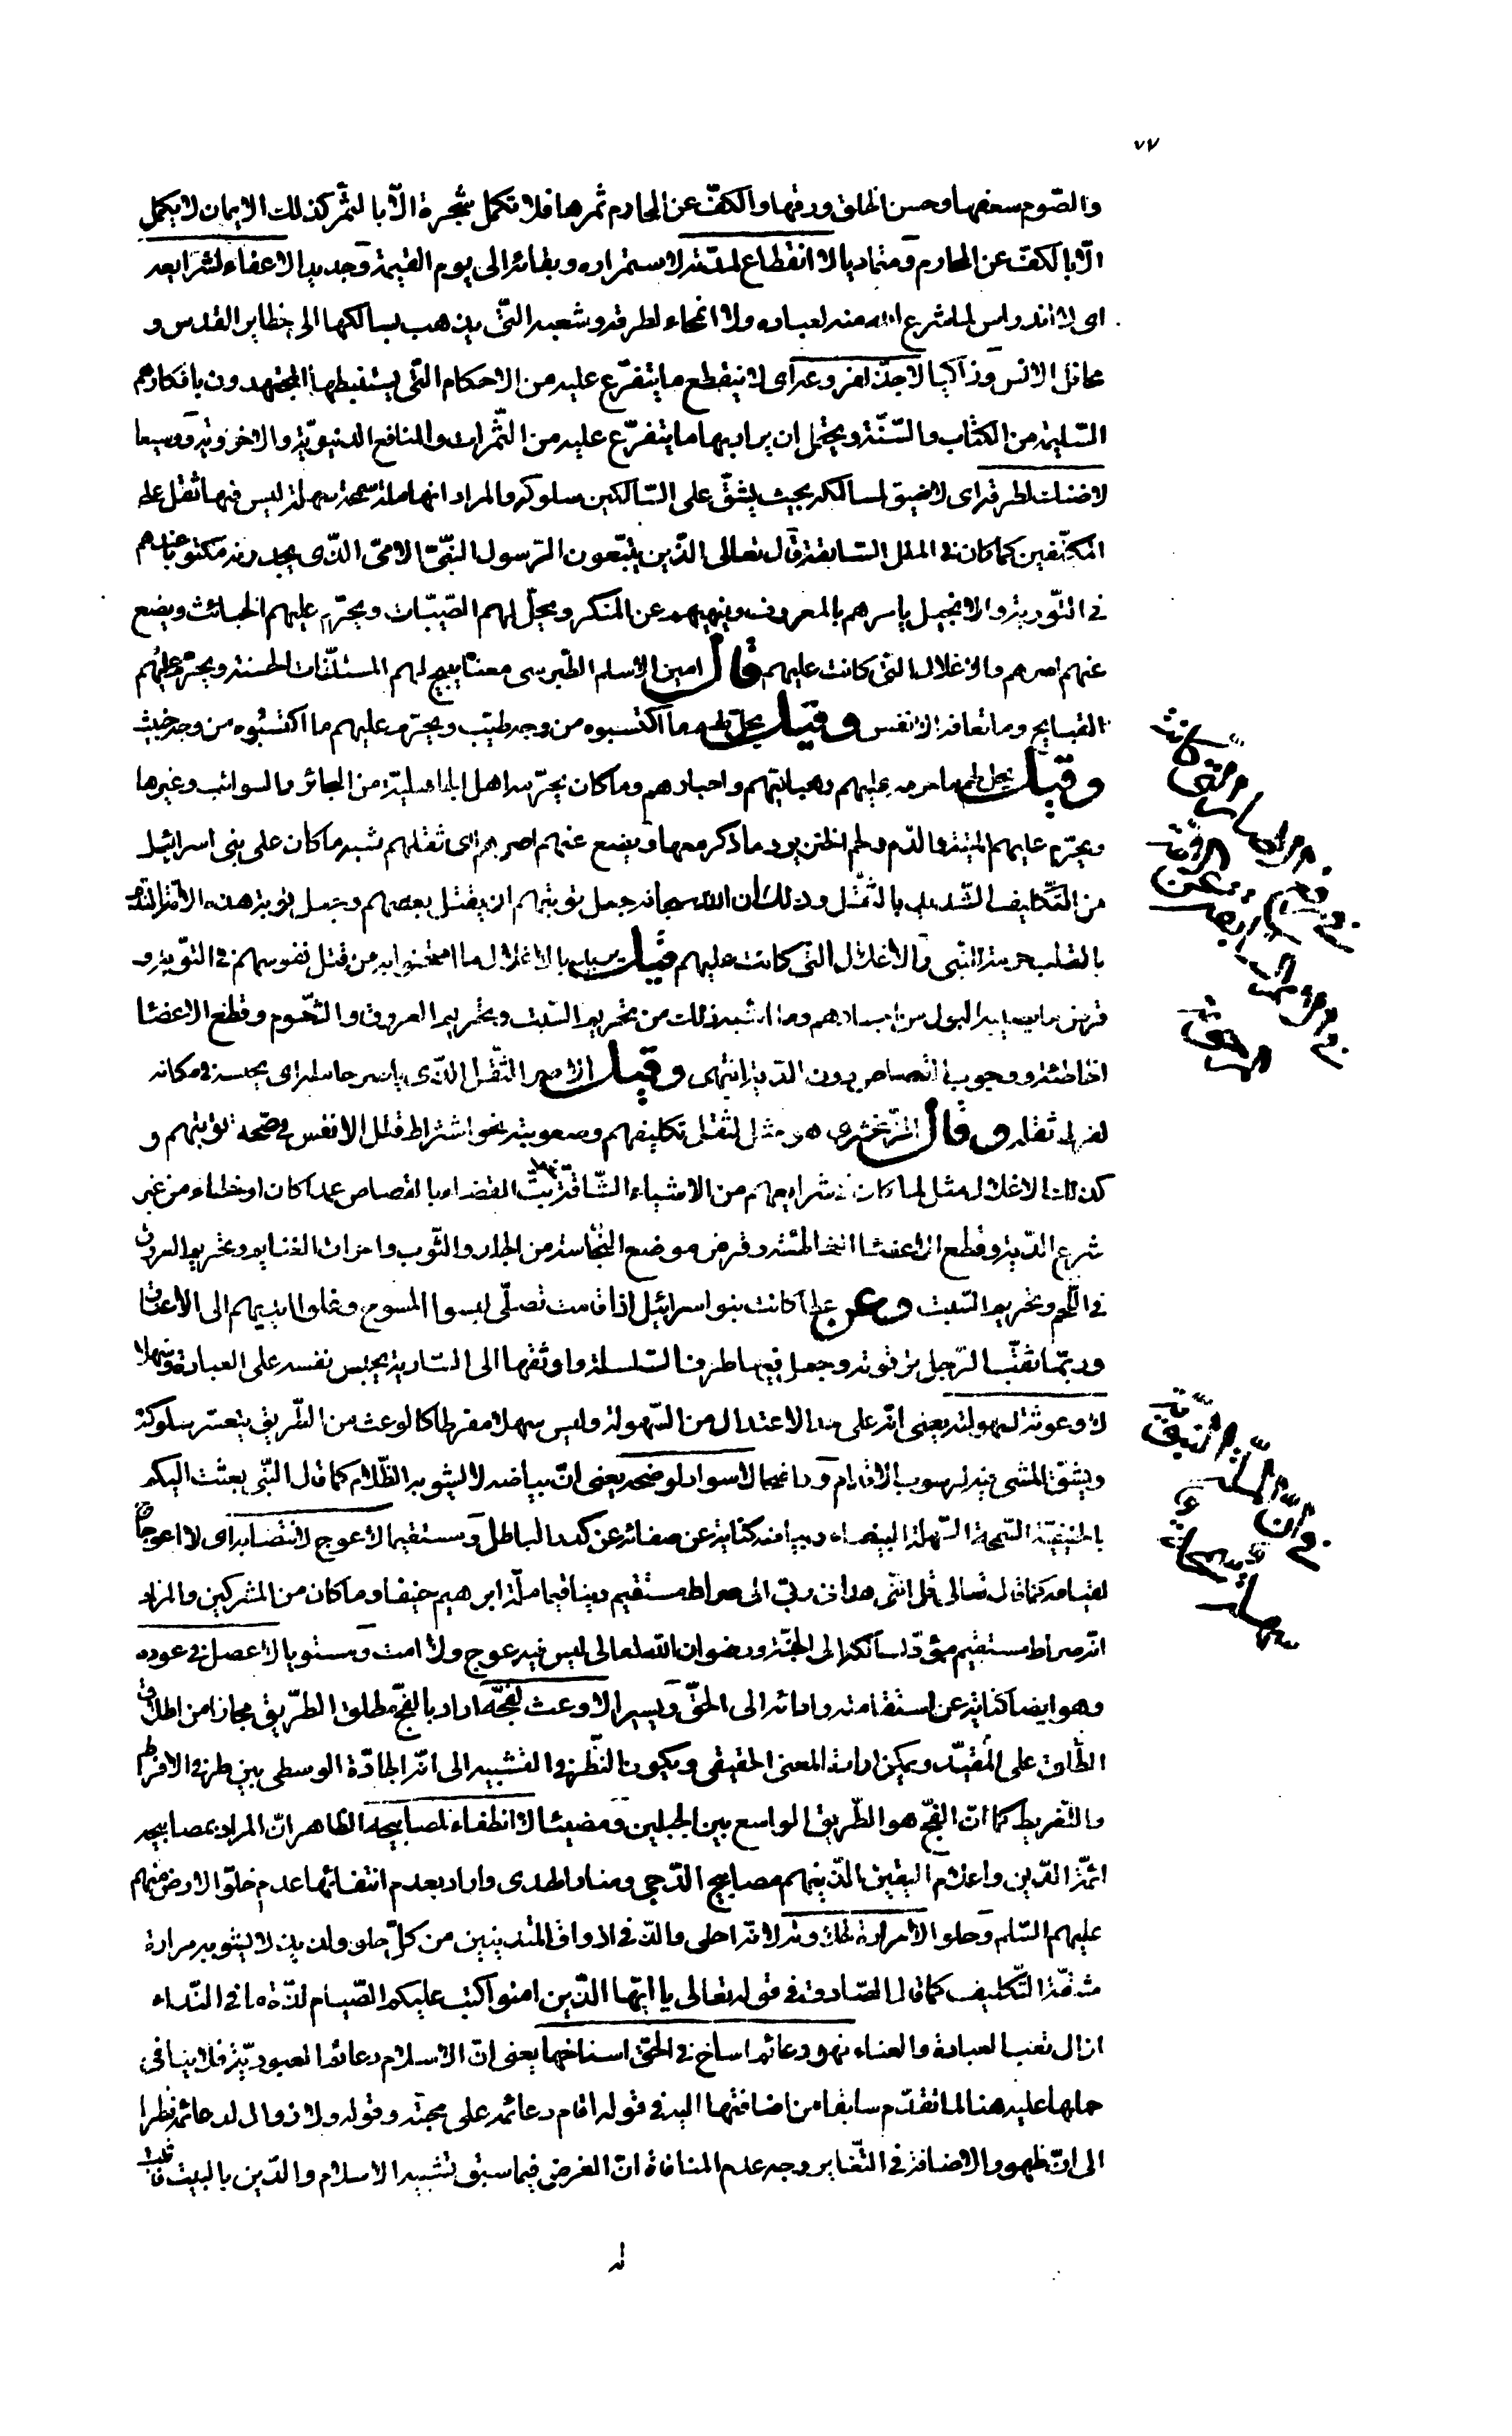 ٧٧
والصّوم سعفها وحسن الخلق ورقها والكفّ عن المحارم ثمرها فلا تكمل شجرة الّا بالثمر كذلك الايمان لا يكمل
الّا بالكفّ عن المحارم ومتماديا لا انقطاع لمدّته لاستمراره وبقائه الى يوم القيمة وجديدا لا عفاء لشرايعه
اى لا اندراس لما شرع الله منه لعباده ولا انمحاء لطرقه وشعبه الّتى يذهب بسالكها الى حظاير القدس و
محافل الانس وذاكيا لا جذّ لفروعه اى لا ينقطع ما يتفرّع عليه من الاحكام الّتى يستنبطها المجتهدون بافكارهم
السّليمة من الكتاب والسّنّة ويحتمل ان يراد بها ما يتفرّع عليه من الثّمرات والمنافع الدنيويّة والاخرويّة ووسيعا
لا ضنك لطرقه اى لا ضيق لمسالكه بحيث يشقّ على السّالكين سلوكه والمراد انها ملة سمحة سهلة ليس فيها ثقل على
المكلّفين كما كان فى الملل السّابقة قال تعالى الّذين يتّبعون الرّسول النّبىّ الامىّ الّذى يجدونه مكتوبا عندهم
فى التّورية والانجيل يأمرهم بالمعروف وينهيهم عن المنكر ويحلّ لهم الطّيّبات ويحرّم عليهم الخبائث ويضع
عنهم اصرهم والاغلال الّتى كانت عليهم قال امين الاسلم الطّبرسى معناه يبيح لهم المستلذّات الحسنة ويحرّم عليهم
القبايح وما تعافه الانفس وقيل يحلّ لهم ما اكتسبوه من وجه طيّب ويحرّم عليهم ما اكتسبوه من وجه خبيث
وقيل يحل لهم ما حرمه عليهم رهبانيّهم واحبارهم وما كان يحرّمه اهل الجاهليّة من البحائر والسوائب وغيرها
ويحرّم عليهم الميتة والدّم ولحم الخنزير وما ذكر معها ويضع عنهم اصرهم اى ثقلهم شبه ما كان على بنى اسرائيل
من التّكليف الشّديد بالثّقل وذلك ان الله سبحانه جعل توبتهم ان يقتل بعضهم وجعل توبة هذه الامّة النّدم
بالقلب حرمة للنّبى والاغلال الّتى كانت عليهم قيل يريد بالاغلال ما امتحنوا به من قتل نفوسهم فى التّوبة و
قرض ما يصيبه البول من اجسادهم وما اشبه ذلك من تحريم السّبت وتحريم العروق والشّحوم وقطع الاعضا
الخاطئة ووجوب القصاص دون الدّية انتهى وقيل الاصر الثّقل الّذى يأصر حامله اى يحبسه فى مكانه
لفرط ثقله وقال الزّمخشرى هو مثل لثقل تكليفهم وصعوبته نحو اشتراط قتل الانفس فى صحّة توبتهم و
كذلك الاغلال مثل لما كان فى شرايعهم من الاشياء الشّاقّة نحو بتّ القضاء بالقصاص عمدا كان او خطاء من غير
شرع الدّية وقطع الاعضا الخاطئة وقرض موضع النّجاسة من الجلد والثّوب واحراق الغنايم وتحريم العروق
فى اللّحم وتحريم السّبت وعن عطا كانت بنو اسرائيل اذا قامت تصلّى لبسوا المسوح وغلوا ايديهم الى الاعناق
وربّما ثقب الرّجل ترقوته وجعل فيها طرف السّلسلة واوثقها الى السّارية يحبس نفسه على العبادة وسهلا
لا وعوثة لسهولته يعنى انّه على حد الاعتدال من السّهولة وليس سهلا مفرطا كالوعث من الطّريق يتعسّر سلوكه
ويشقّ المشى فيه لرسوب الاقدام وواضحا لا سواد لوضحه يعنى انّ بياضه لا يشوبه الظّلام كما قال النّبى بعثت اليكم
بالحنيفيّة السّمحة السّهلة البيضاء وبياضه كناية عن صفائه عن كدر الباطل ومستقيما لا عوج لانتصابه اى لا اعوجاج
لقيامه كما قال تعالى قل انّنى هدانى ربّى الى صراط مستقيم دينا قيما ملّة ابرهيم حنيفا وما كان من المشركين والمراد
انّه صراط مستقيم مؤدّ لسالكه الى الجنّة ورضوان الله تعالى ليس فيه عوج ولا امت ومستويا لا عصل فى عوده
وهو ايضا كناية عن استقامته وادائه الى الحقّ ويسيرا لا وعث لفجّه اراد بالفجّ مطلق الطّريق مجازا من اطلاق
المطلق على المقيّد ويمكن ارادة المعنى الحقيقى ويكون النّظر فى التشبيه الى انّه الجادّة الوسطى بين طرفى الافراط
والتّفريط كما انّ الفجّ هو الطّريق الواسع بين الجبلين ومضيئا لا انطفاء لمصابيحه الظاهر انّ المراد بمصابيحه
ائمّة الدّين واعلام اليقين الّذينهم مصابيح الدّجى ومنار الهدى واراد بعدم انتفائها عدم خلوّ الارض منهم
عليهم السّلم وحلوا لا مرارة لحلاوته لانّه احلى والذّ فى اذواق المتديّنين من كلّ حلو ولذيذ لا يشوبه مرارة
مشقّة التّكليف كما قال الصّادق فى قوله تعالى يا ايّها الّذين امنوا كتب عليكم الصّيام لذّة ما فى النّداء
ازال تعب العبادة والعناء فهو دعائم اساخ فى الحقّ اسناخها يعنى انّ الاسلام دعائم العبوديّة فلا ينافى
حملها عليه هنا لما تقدّم سابقا من اضافتها اليه فى قوله اقام دعائمه على محبّته وقوله ولا زوال لدعائمه نظرا
الى انّ ظهور الاضافة فى التّغاير وجه عدم المنافاة انّ الغرض فيما سبق تشبيه الاسلام والدّين بالبيت